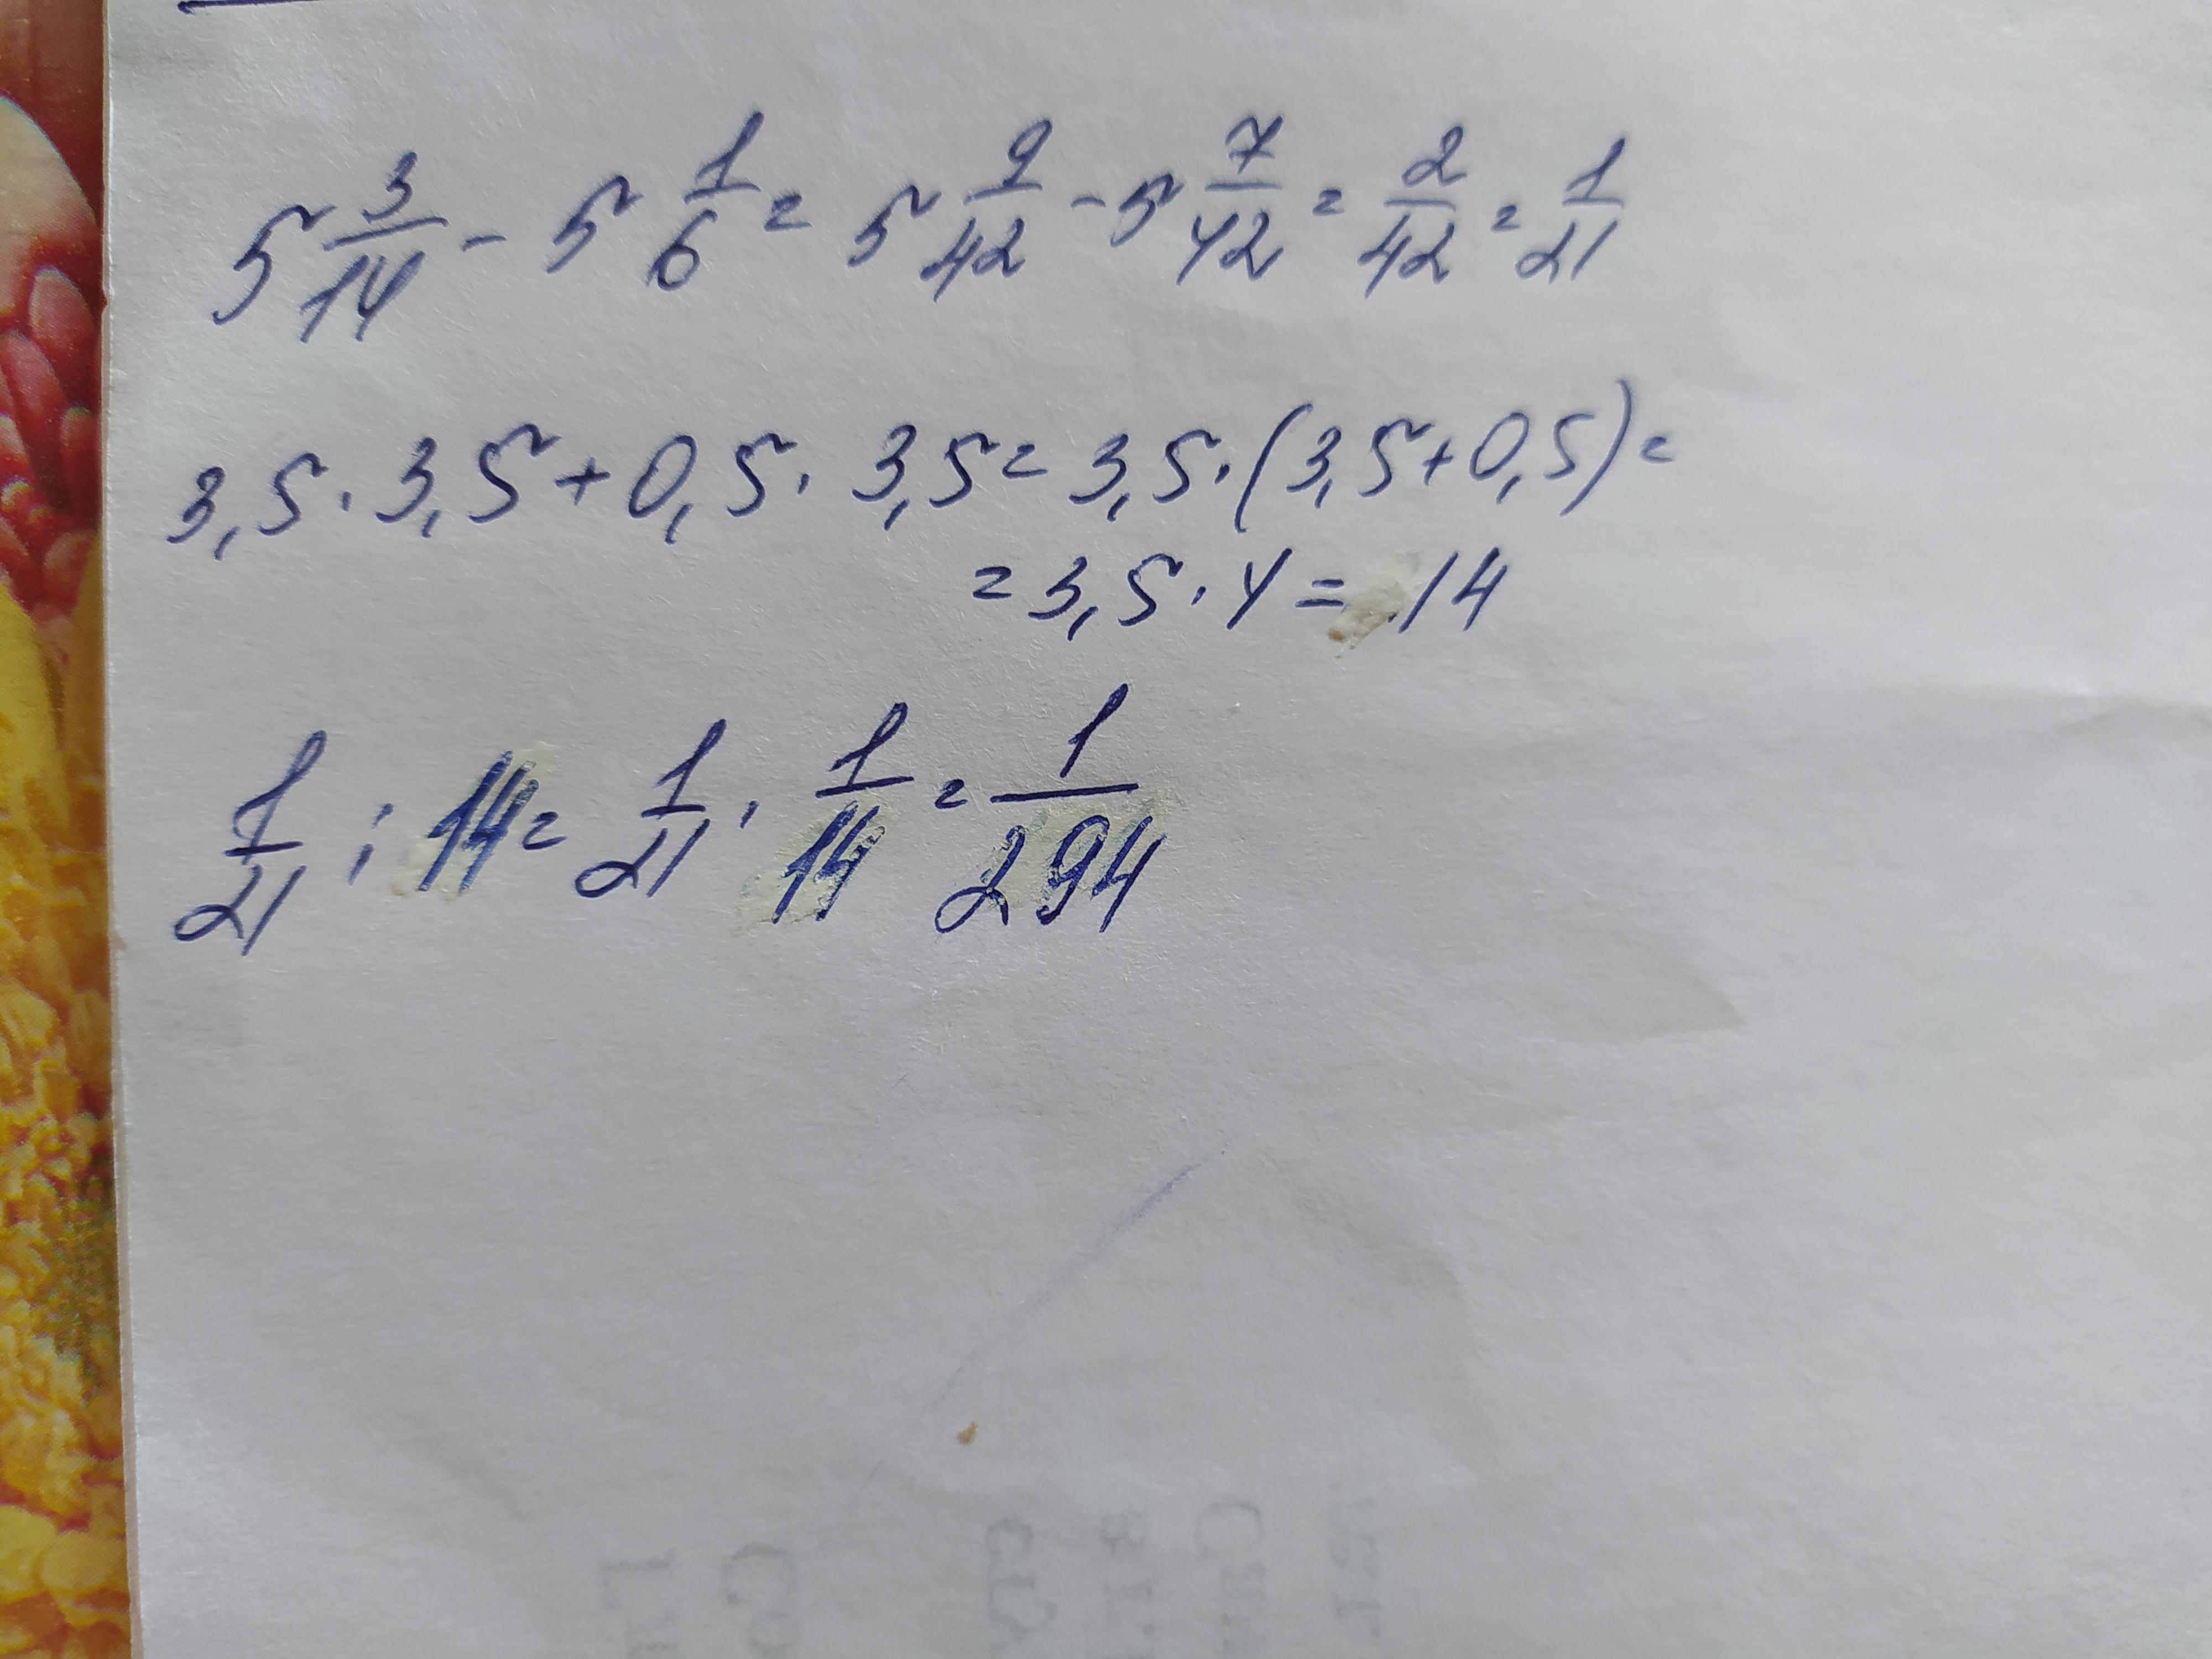 5 3/14 - 5 1/6 = 5 9/42 - 5 7/42 = 2/42 = 1/21
3,5 · 3,5 + 0,5 · 3,5 = 3,5 · (3,5 + 0,5) =
= 3,5 · 4 = 14
1/21 : 14 = 1/21 · 1/14 = 1/294